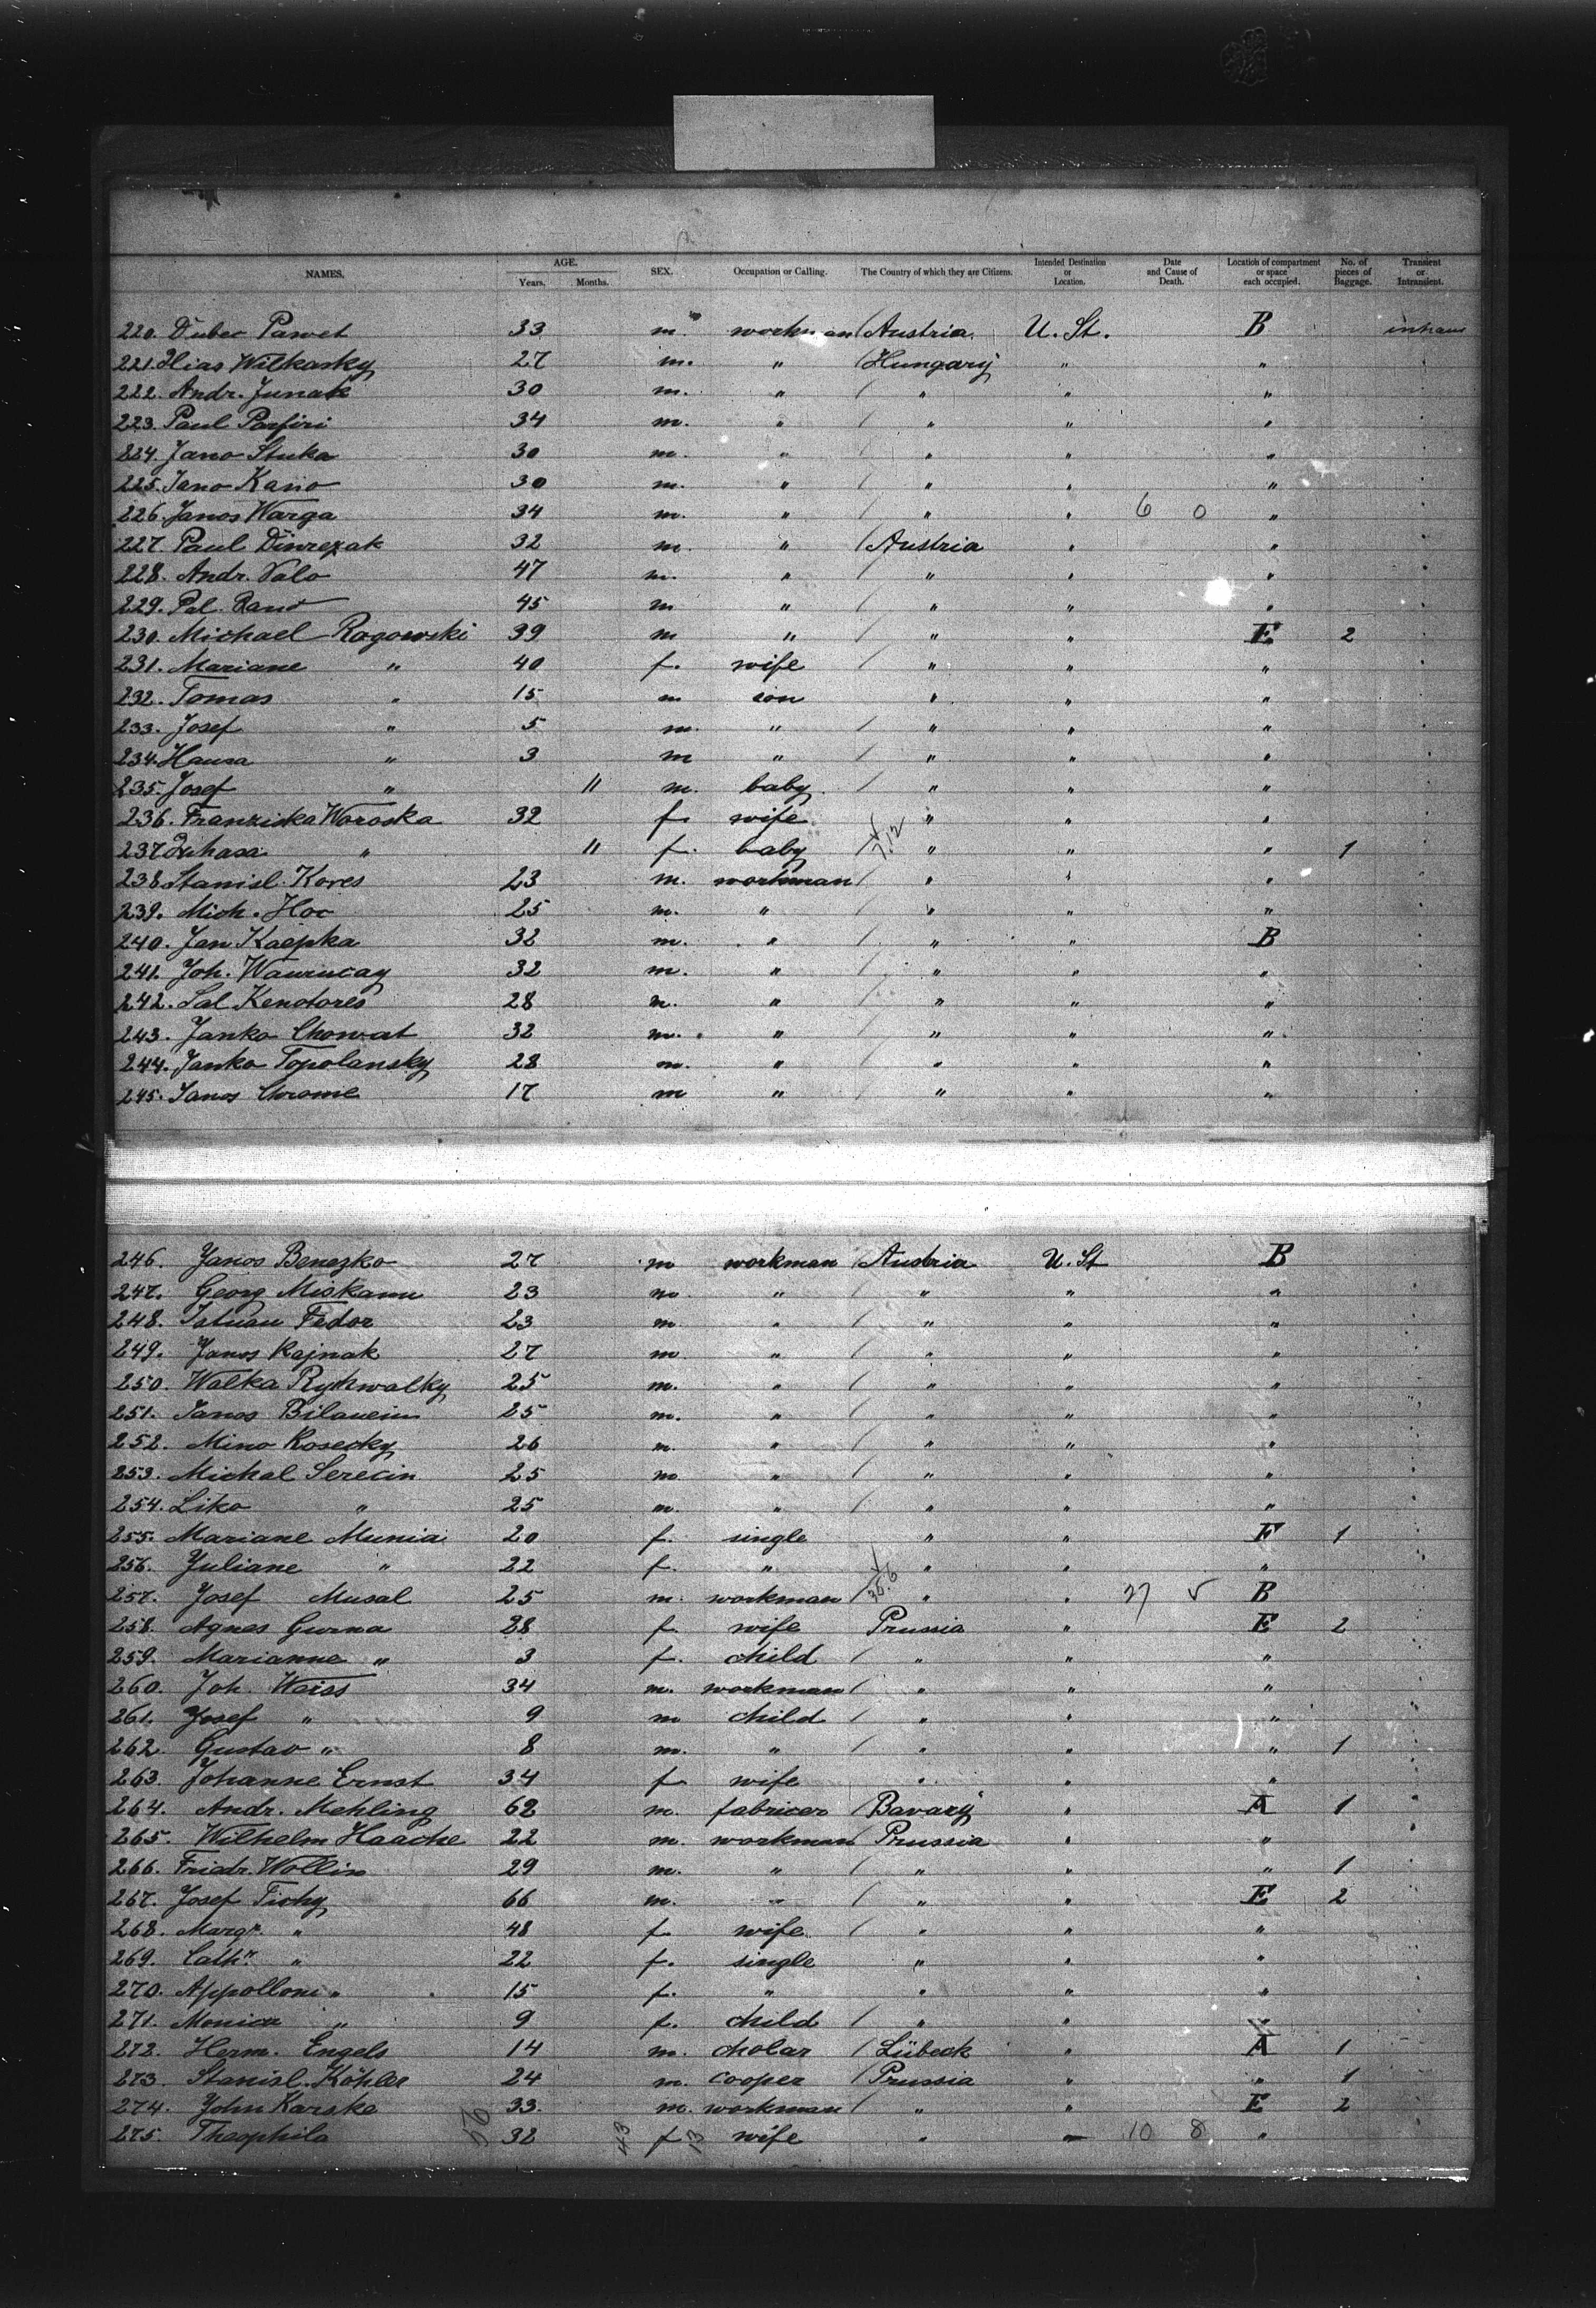 NAMES. AGE. Years. Months. SEX. Occupation or Calling. The Country of which they are Citizens. Intended Destination or Location. Date and Cause of Death. Location of compartment or space each occupied. No. of pieces of Baggage. Transient or Intransient.
220. Dubec Pawet 33 m. workman Austria U. St. B
221. Elias Wilkasky 27 m. " Hungary " "
222. Andr. Junak 30 m. " " " "
223. Paul Parfiri 34 m. " " " "
224. Jano Stuka 30 m. " " " "
225. Jano Kano 30 m. " " " "
226. Janos Warga 34 m. " " " 6 0 "
227. Paul 32 m. " Austria " "
228. Andr. Valo 47 m. " " " "
229. Pal. 45 m " " " "
230. Michael Rogowski 39 m " " " E 2
231. Mariane " 40 f. wife " " "
232. Tomas " 15 m son " " "
233. Josef " 5 m. " " " "
234. " 3 m " " " "
235. Josef " 11 m. baby " " "
236. Franziska Woroska 32 f. wife " " "
237 " 11 f. baby " " " 1
238 Stanisl. Kores 23 m. workman " " "
239. Mich. Hoc 25 m. " " " "
240. Jan Kaepka 32 m. " " " B
241. Joh. 32 m. " " " "
242. Sal Kenotores 28 m. " " " "
243. Janko Chowat 32 m. " " " "
244. Janko Topolansky 28 m. " " " "
245. Janos Chrome 17 m " " " "
246. Janos Benezko 27 m workman Austria U. St B
247. Georg Miskanu 23 m. " " " "
248. Fedor 23 m " " " "
249. Janos Rajnak 27 m " " " "
250. Walka Rychwalky 25 m. " " " "
251. Janos 25 m. " " " "
252. Mino Kosecky 26 m. " " " "
253. Michal Serecin 25 m " " " "
254. Liko " 25 m. " " " "
255. Mariane Munia 20 f. single " " E 1
256. Juliane " 22 f. " " " "
257. Josef Musal 25 m. workman " " 27 5 B
258. Agnes Gurna 28 f. wife Prussia " E 2
259. Marianne " 3 f. child " " "
260. Joh. Weiss 34 m. workman " " "
261. Josef " 9 m child " " "
262. Gustav " 8 m. " " " " 1
263. Johanne Ernst 34 f. wife " " "
264. Andr. Mehling 62 m. fabricer Bavary " A 1
265. Wilhelm Haacke 22 m. workman Prussia " "
266. Friedr. Wollin 29 m. " " " " 1
267. Josef Tichy 66 m. " " " E 2
268. Margr. " 48 f. wife " " "
269. Cathr. " 22 f. single " " "
270. Appolloni " 15 f. " " " "
271. Monica " 9 f. child " "
272. Herm. Engels 14 m. cholar Lübeck " A 1
273. Stanisl. Köhler 24 m. cooper Prussia " " 1
274. John Karske 33. m. workman " " E 2
275. Theophila 32 f wife " " 10 8 "